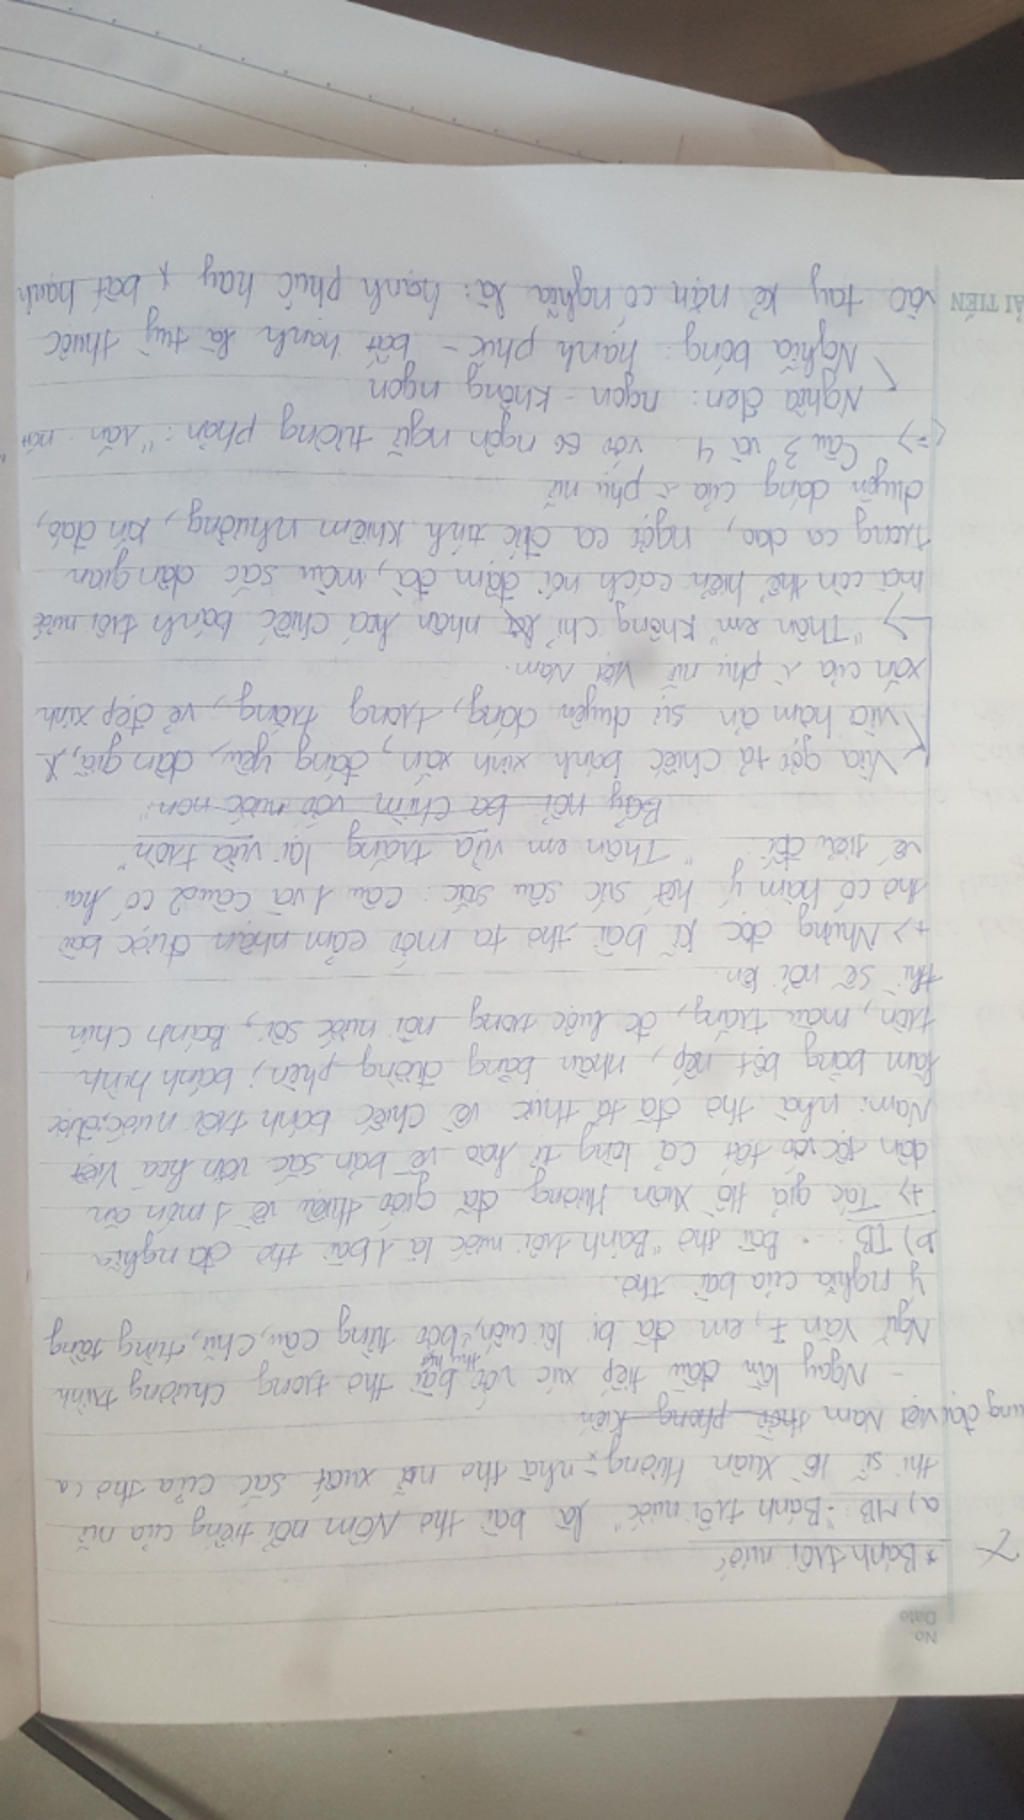 No
Date
* Bánh trôi nước
a) MB: "Bánh trôi nước" là bài thơ Nôm nổi tiếng của nữ
thi sĩ Hồ Xuân Hương - nhà thơ nữ xuất sắc của thơ ca
trung đại Việt Nam thời phong kiến
- Ngay lần đầu tiếp xúc với bài thơ trong chương trình
Ngữ Văn 7, em đã bị lôi cuốn bởi từng câu, chữ, từng tầng
ý nghĩa của bài thơ.
b) TB: • Bài thơ "Bánh trôi nước là 1 bài thơ đa nghĩa
+> Tác giả Hồ Xuân Hương đã giới thiệu về 1 món ăn
dân tộc với tất cả lòng tự hào về bản sắc văn hoá Việt
Nam: nhà thơ đã tả thực về chiếc bánh trôi nước: được
làm bằng bột nếp, nhân bằng đường phèn, bánh hình
tròn, màu trắng, đc luộc trong nồi nước sôi, Bánh chín
thì sẽ nổi lên.
+> Nhưng đọc kĩ bài thơ ta mới cảm nhận được bài
thơ có hàm ý hết sức sâu sắc: câu 1 và câu 2 có hai
vế tiểu đối "Thân em vừa trắng lại vừa tròn"
Bảy nổi ba chìm với nước non"
Vừa gợi tả chiếc bánh xinh xắn, đáng yêu, dân giã,
Vừa hàm ẩn sự duyên dáng, trong trắng, vẻ đẹp xinh
xắn của phụ nữ Việt Nam.
-> "Thân em" không chỉ nhân hoá chiếc bánh trôi nước
mà còn thể hiện cách nói đậm đà, màu sắc dân gian
trong ca dao, ngợi ca đức tính khiêm nhường, kín đáo,
duyên dáng của phụ nữ
=> Câu 3 và 4 với ngôn ngữ tương phản: "rắn nát
Nghĩa đen: ngon - không ngon
Nghĩa bóng: hạnh phúc - bất hạnh là tuỳ thuộc
vào tay kẻ nặn có nghĩa là: hạnh phúc hay bất hạnh
ẢI TIẾN